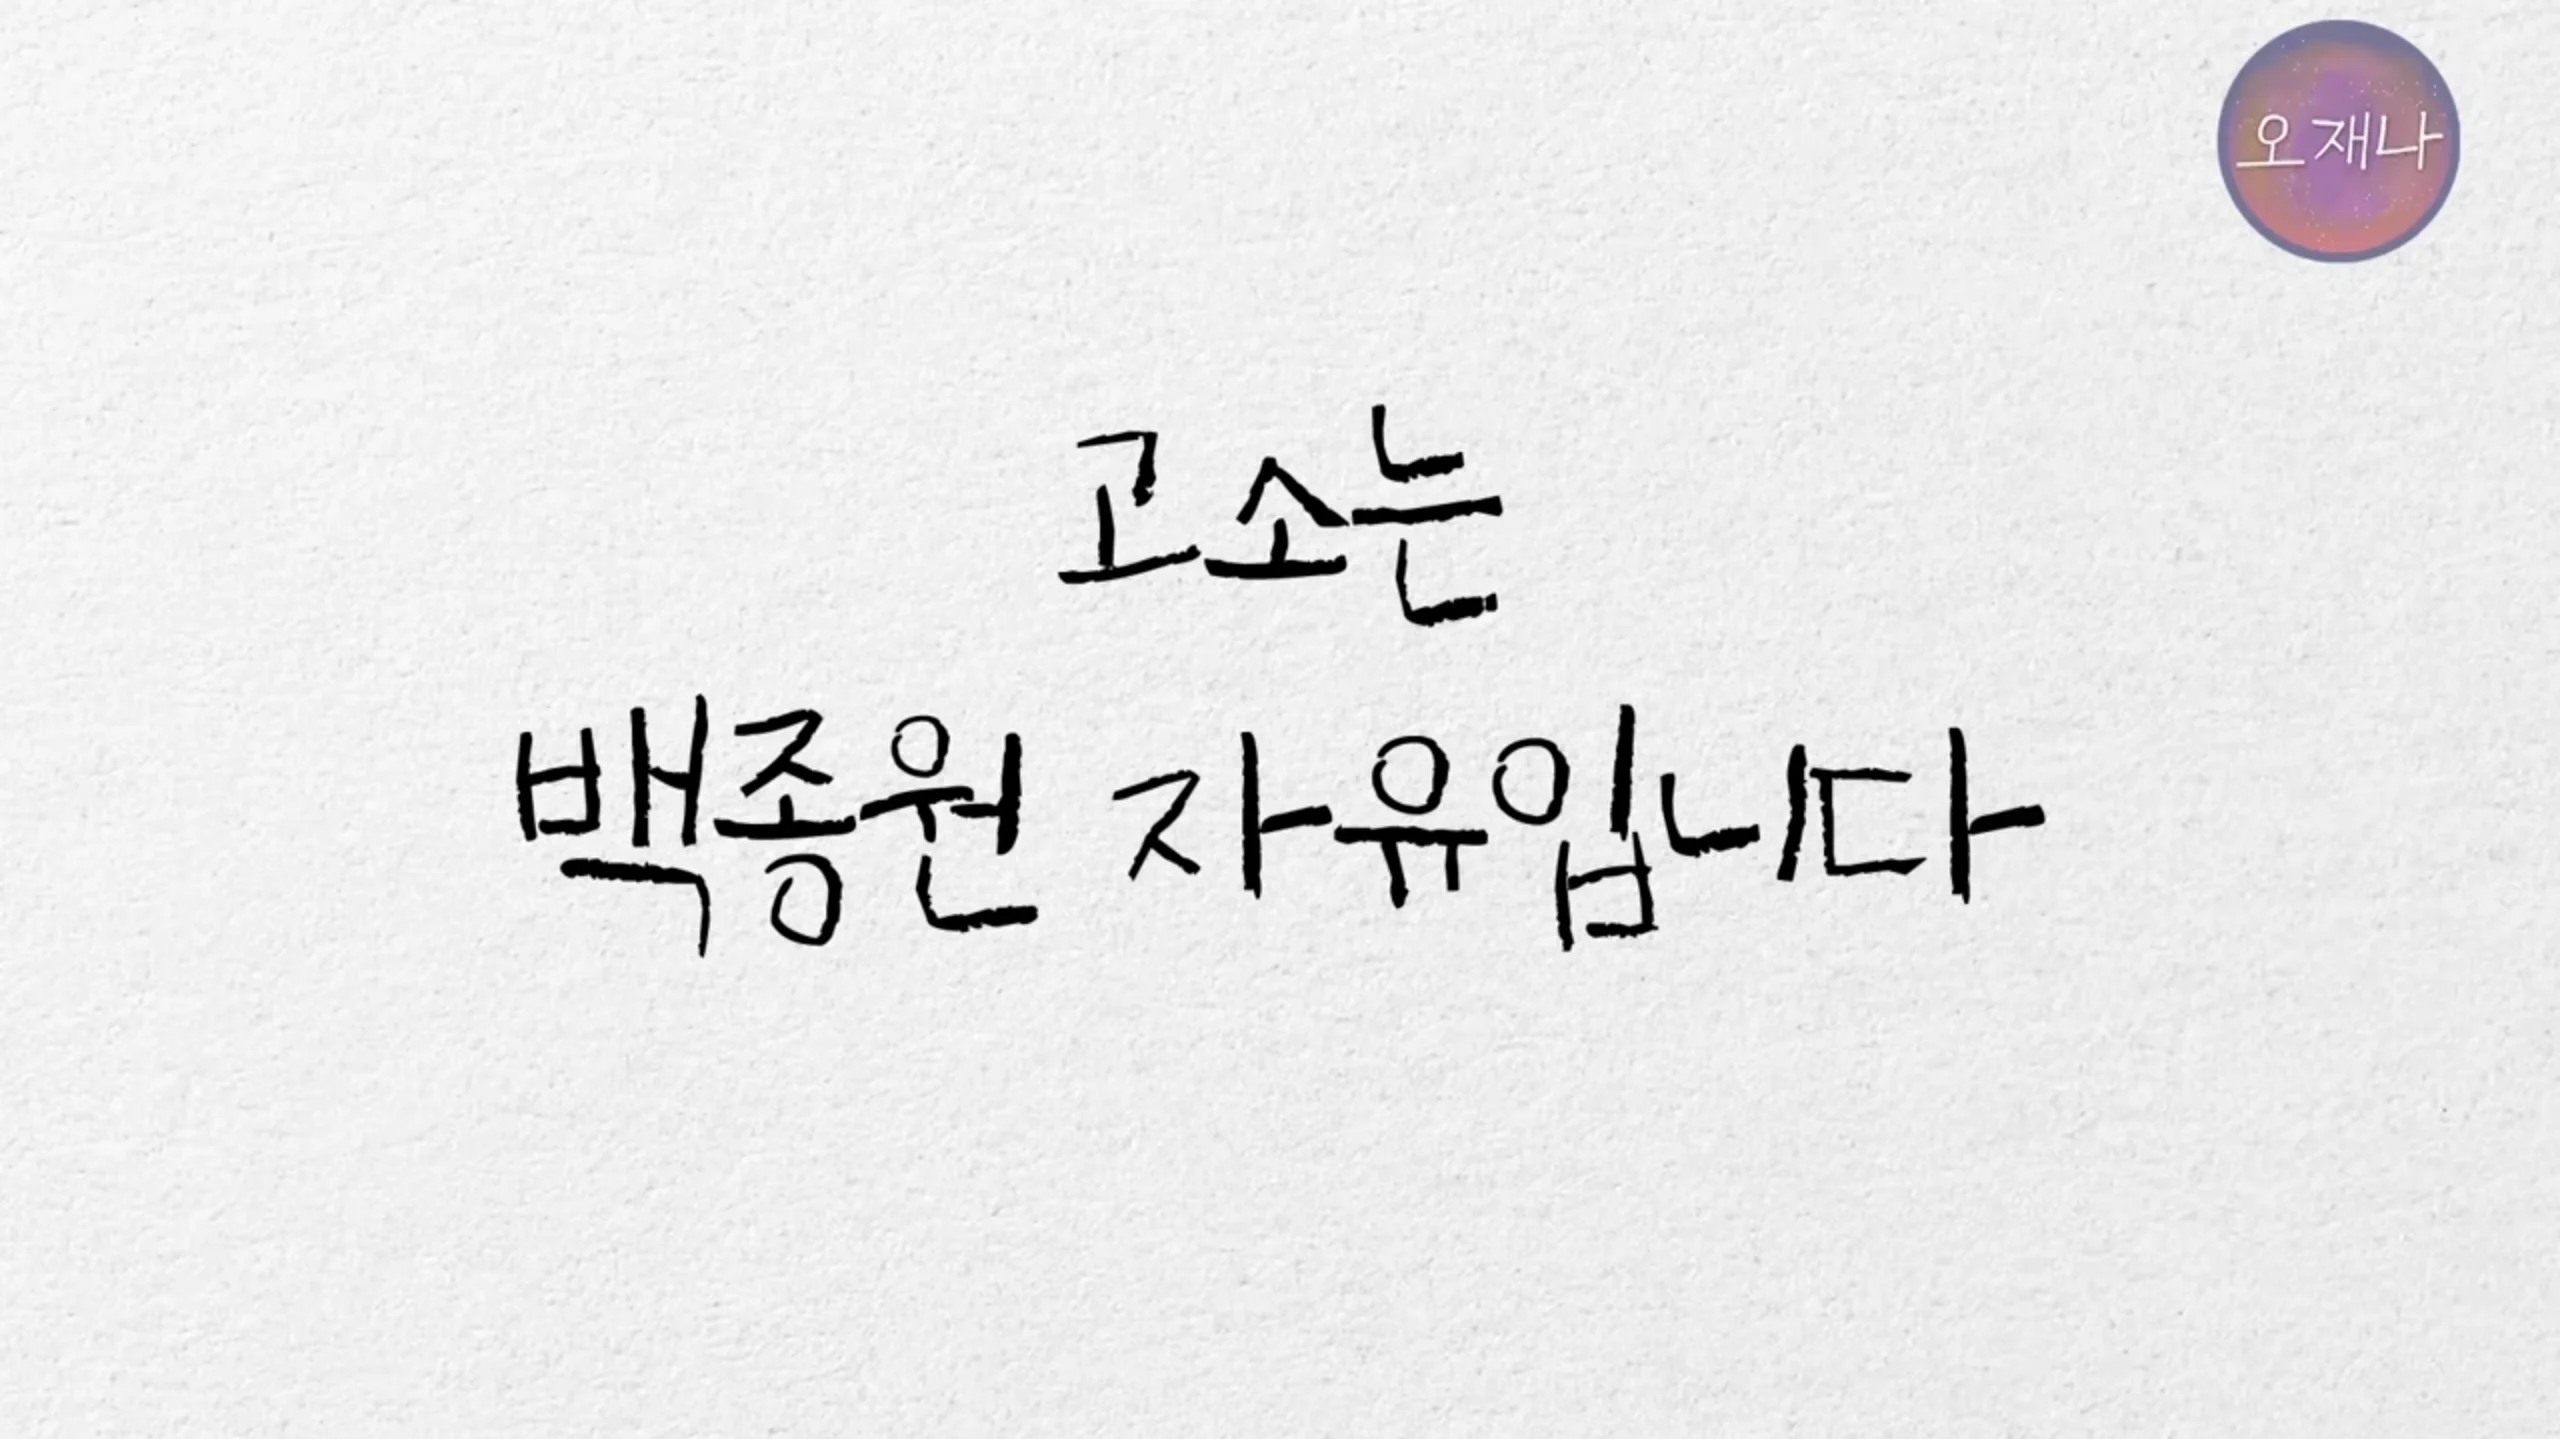 오재나
고소는
백종원 자유입니다